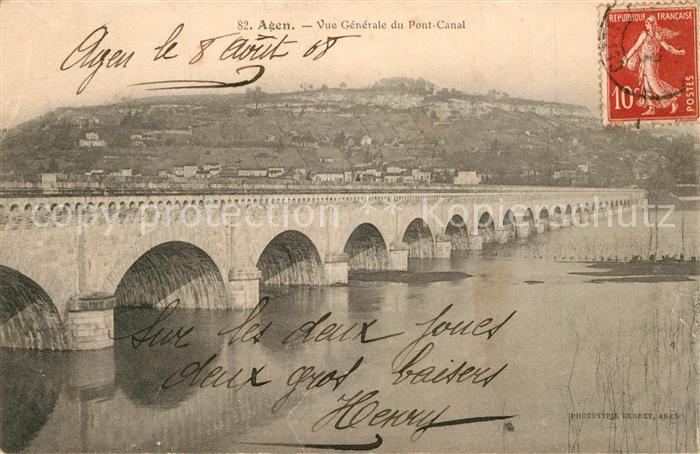 82. AGEN. — Vue Générale du Pont-Canal
Agen le 8 août 08
RÉPUBLIQUE FRANÇAISE
10c
POSTES
copy protection ** Kopierschutz
Sur les deux joues
deux gros baisers
Henry
PHOTOTYPIE DERRET, AGEN